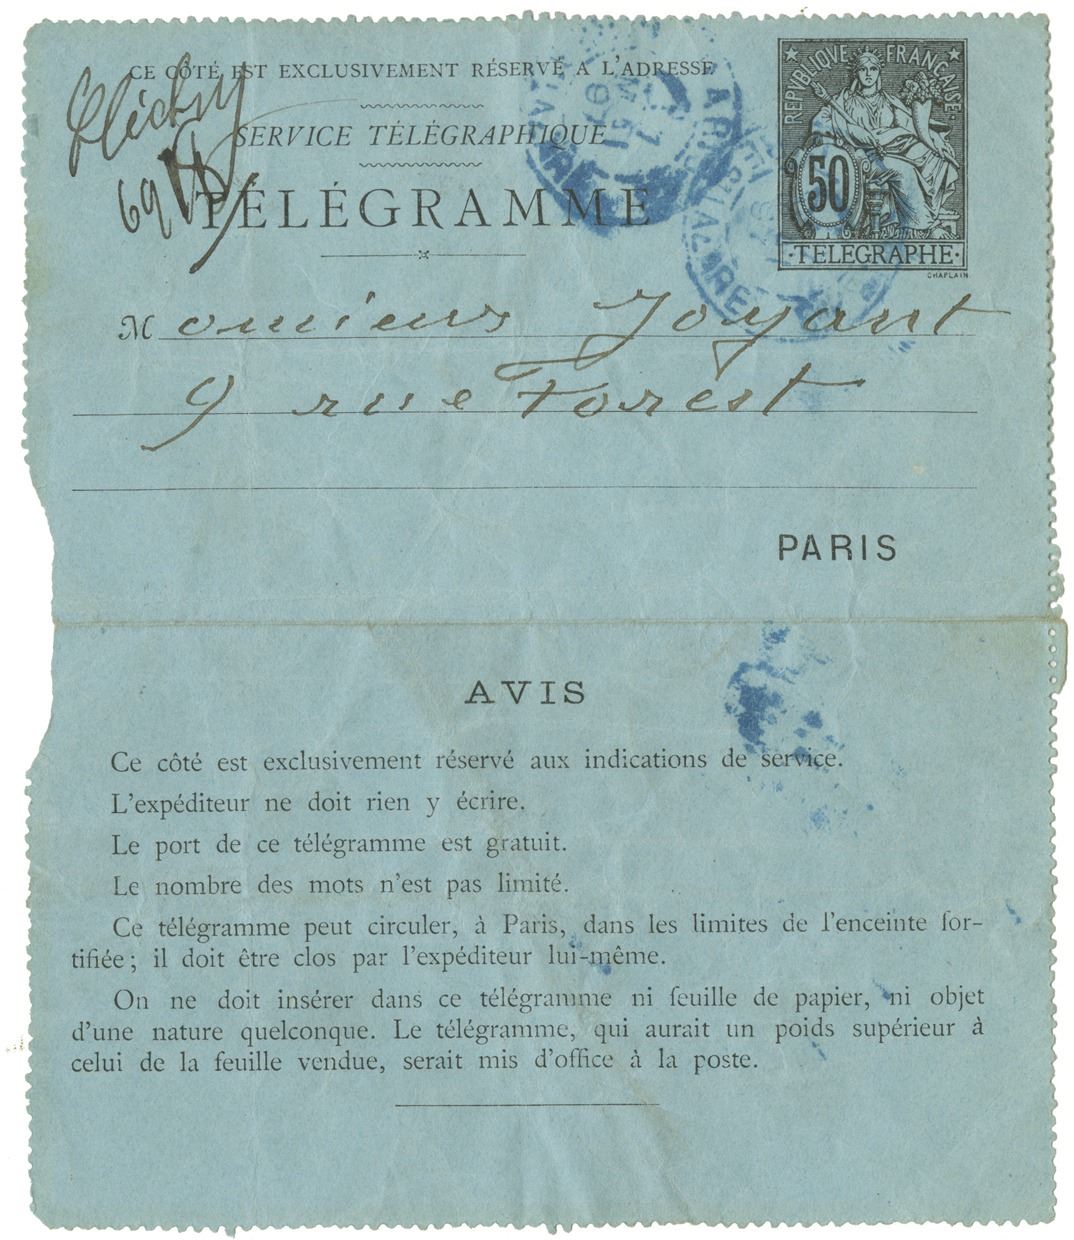 CE CÔTÉ EST EXCLUSIVEMENT RÉSERVÉ A L'ADRESSE
Clichy
69
SERVICE TÉLÉGRAPHIQUE
TÉLÉGRAMME
REPUBLIQUE FRANCAISE
50
C
TELEGRAPHE
CHAPLAIN
Monsieur Joyant
9 rue Forest
PARIS
AVIS
Ce côté est exclusivement réservé aux indications de service.
L'expéditeur ne doit rien y écrire.
Le port de ce télégramme est gratuit.
Le nombre des mots n'est pas limité.
Ce télégramme peut circuler, à Paris, dans les limites de l'enceinte for-
tifiée; il doit être clos par l'expéditeur lui-même.
On ne doit insérer dans ce télégramme ni feuille de papier, ni objet
d'une nature quelconque. Le télégramme, qui aurait un poids supérieur à
celui de la feuille vendue, serait mis d'office à la poste.